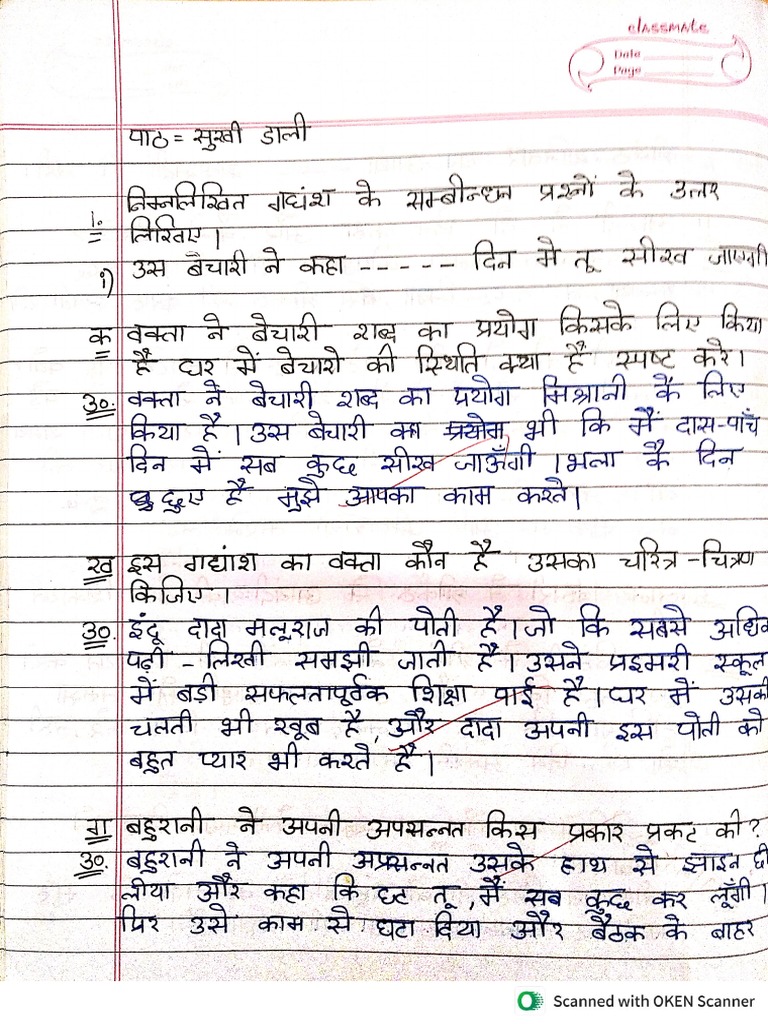 classmate
Date
Page
पाठ = सुखी डाली
1. निम्नलिखित गद्यंश के सम्बीन्धन प्रश्नों के उत्तर
लिखिए।
i) उस बेचारी ने कहा ----- दिन मे तू सीख जाएगी
क वक्ता ने बेचारी शब्द का प्रयोग किसके लिए किया
है घर में बेचारो की स्थिति क्या है स्पष्ट करे।
उ०. वक्ता ने बेचारी शब्द का प्रयोग मिश्रानी के लिए
किया है। उस बेचारी का प्रयोग भी कि मैं दास-पाँच
दिन में सब कुछ सीख जाऊँगी। भला कै दिन
हुए है मुझे आपका काम करते।
ख इस गद्यांश का वक्ता कौन है उसका चरित्र-चित्रण
किजिए।
उ०. इंदू दादा मलूराज की पोती है। जो कि सबसे अधिक
पढ़ी-लिखी समझी जाती है। उसने प्रइमरी स्कूल
में बड़ी सफलतापूर्वक शिक्षा पाई है। घर में उसकी
चलती भी खूब है, और दादा अपनी इस पोती को
बहुत प्यार भी करते है।
ग बहुरानी ने अपनी अपसन्नत किस प्रकार प्रकट की?
उ०. बहुरानी ने अपनी अप्रसन्नत उसके हाथ से झाड़न छी
लीया और कहा कि हट तू, मैं सब कुछ कर लूँगी।
फिर उसे काम से हटा दिया और बैठक के बाहर
Scanned with OKEN Scanner